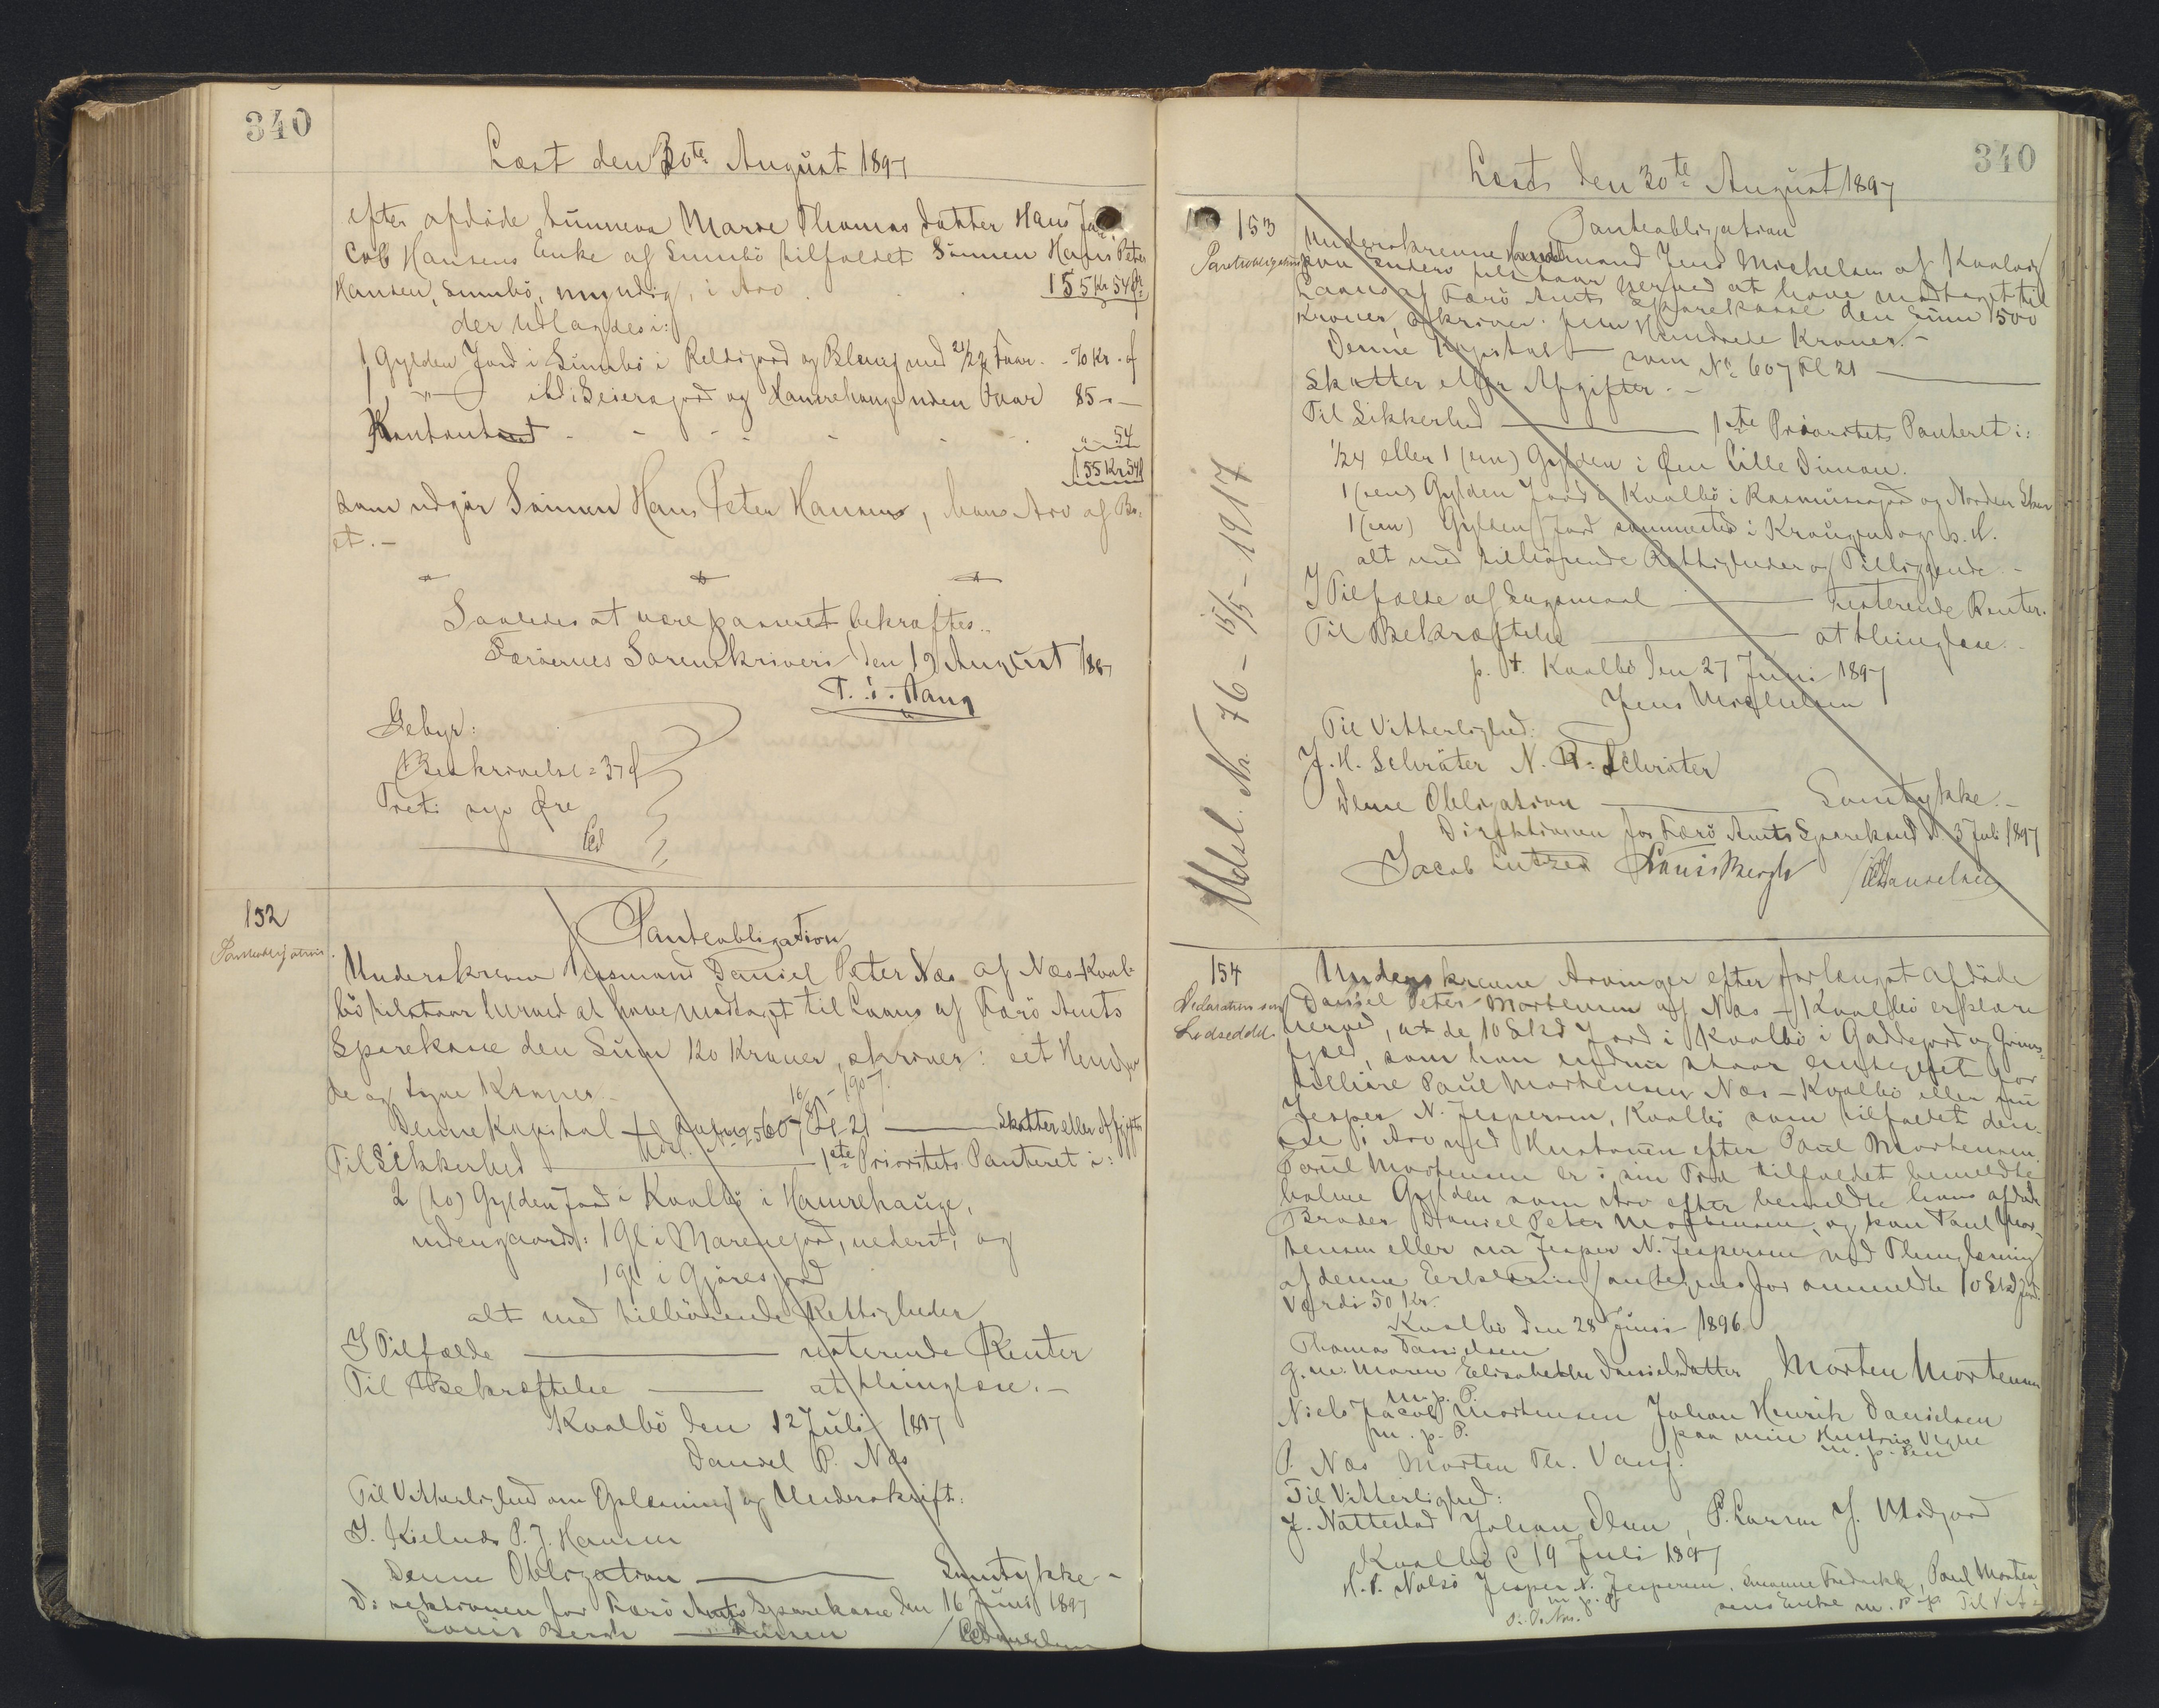 340
Læst den 30te August 1897
efter afdøde Sunneva Marie Thomas datter Hans Ja-
cob Hansens Enke af Sumbö tilfaldet Sönnen Hans Peter
Hansen, Sumbö, myndig, i Arv 155 Kr 54 Ø
der udlagdes i:
1 Gylden Jord i Sumbö i og med Faar - 70 Kr. -
1 -"- ibd i og Hamrehauge uden Faar 85 - -
Kontant - - - - - - " - 54
155 Kr 54
som udgör Sönnen Hans Peter Hansens, hans Arv af Bo-
et. -
Saaledes at være passeret bekræftes.
Færøernes Sorenskriveri den 19 August 1897
Gebyr:
Beskrivelse = 37 Ø
Treti syv Øre
152
Panteobligation.
Panteobligation
Underskrevne Daniel Peter Næs af Næs-Kvalbö
bö tilstaar herved at have modtaget til Laans af Færö Amts
Sparekasse den Sum 120 Kroner, skriver: eet Hundre-
de og tyve Kroner -
Denne Kapital som 607 Fl 21 ——— Skatter eller Afgifter
Til Sikkerhed ——— 1ste Prioritets Panteret i:
2 (to) Gylden Jord i Kvalbö i Hamrehauge,
udengaards: 1 Gl i Marenejord, nederst, og
1 Gl i Gjöresjord
alt med tilhörende Rettigheder
I Tilfælde ——— resterende Renter
Til Bekræftelse ——— at thinglæse. -
Kvalbö den 12 Juli 1897
Daniel P. Næs
Til Vitterlighed om Oplæsning og Underskrift:
J. Kielnæs P. J. Hansen
Denne Obligation ——— Samtykke -
Direktionen for Færö Amts Sparekasse den 16 Juni 1897
Louis Bergh
340
Læst den 30te August 1897
153
Panteobligation
Panteobligation
Underskrevne Handelsmand Jens Michelsen af Kvalvig
paa Suderö tilstaar herved at have modtaget til
Laans af Færö Amts Sparekasse den Sum 1500
Kroner, skriver: Hundrede Kroner. -
Denne Kapital som No 607 Fl 21 ———
Skatter eller Afgifter. -
Til Sikkerhed ——— 1ste Prioritets Panteret i:
1/24 eller 1 (een) Gylden i Øen Lille Dimon.
1 (een) Gylden Jord i Kvalbö i Rasmusjord og Norden
1 (een) Gylden Jord sammested i
alt med tilhörende Rettigheder og Tilliggende -
I Tilfælde af Søgsmaal ——— resterende Renter.
Til Bekræftelse ——— at thinglæse.
p. t. Kvalbö den 27 Juni 1897
Jens Michelsen
Til Vitterlighed:
J. H. Schröter N. Schröter
Denne Obligation ——— Samtykke. -
Direktionen for Færö Amts Sparekasse d. 3 Juli 1897
Jacob Lützen Louis Bergh
Udsl. Nr. 76 - 15/5 - 1917
154
Declaration som
Lodseddel.
Underskrevne Arvinger efter forlængst afdöde
Daniel Peter Mortensen af Næs - Kvalbö erklære
herved, at de 10 Skd Jord i Kvalbö i Gaddejord og
som han endnu staar antegnet for
tilhöre Paul Mortensen Næs - Kvalbö eller nu
Jesper N. Jespersen, Kvalbö som tilfaldet den-
ne i Arv med Hustruen efter Paul Mortensen.
Paul Mortensen er i sin Tid tilfaldet bemeldte
halve Gylden som Arv efter bemeldte hans afdöde
Broder Daniel Peter Mortensen, og kan Paul Mor-
tensen eller nu Jesper N. Jespersen ved Thinglæsning
af denne Erklæring antegnes for anmeldte 10 Skd Jord.
Værdi 50 Kr.
Kvalbö den 28 Juni 1896
Thomas Danielsen
g. m. Maren Elisabethe Danielsdatter Morten Mortensen
m. p. P.
Niels Jacob Mortensen Johan Henrik Danielsen
m. p. P. paa min Hustrus Vegne
m. p. Pen
P. Næs Morten Th. Vang.
Til Vitterlighed:
J. Nattestad Johan Olsen, P. Larsen J. Midjord
Kvalbö d 19 Juli 1897
H. P. Nolsö Jesper N. Jespersen, Susanne Fredrikke, Paul Morten-
m. p. P. sens Enke m. P. p. Til V. A: